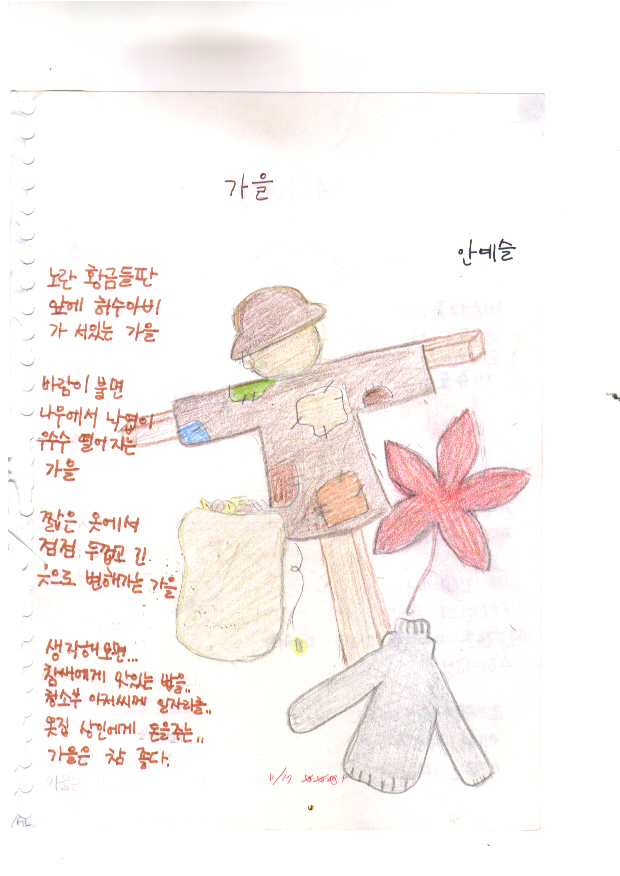 가을
안예슬
노란 황금들판
앞에 허수아비
가 서있는 가을
바람이 불면
나무에서 낙엽이
우수수 떨어지는
가을
짧은 옷에서
점점 두껍고 긴
옷으로 변해가는 가을
생각해보면...
참새에게 맛있는 밥을..
청소부 아저씨께 일자리를..
옷집 상인에게 돈을주는..
가을은 참 좋다.
11/17